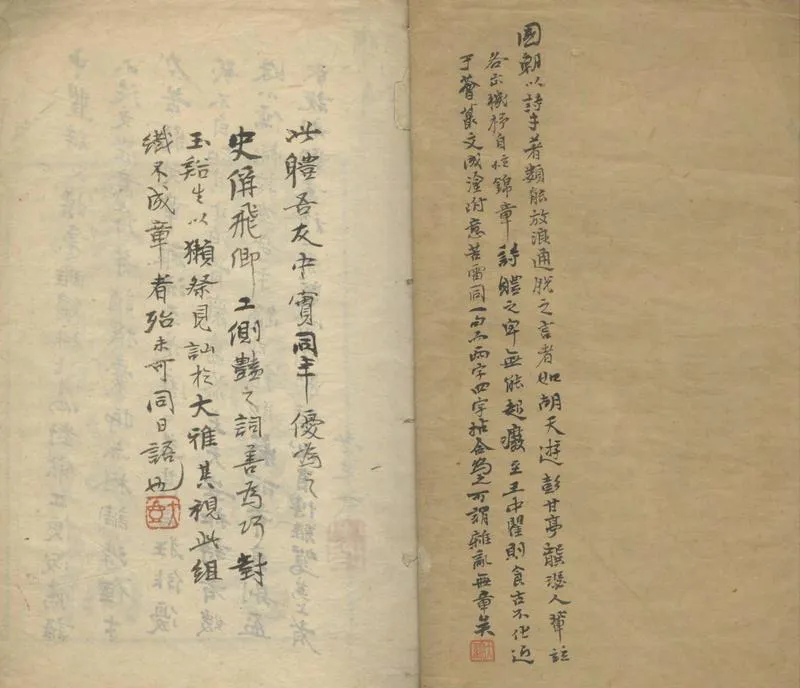 國朝以詩手著類能放浪通脫之言者如胡天游彭甘亭龔瑟人輩
各出機杼自成錦章詩體之卑無能起廢至王中瞿則食古不化近
于薈蕞文成塗附意苦雷同一句不兩字四字拈合為之可謂雜亂無章矣
此體吾友中實同年優為之
史偁飛卿工側豔之詞善為巧對
玉谿生以獺祭見訕於大雅其視此組
織不成章者殆未可同日語也